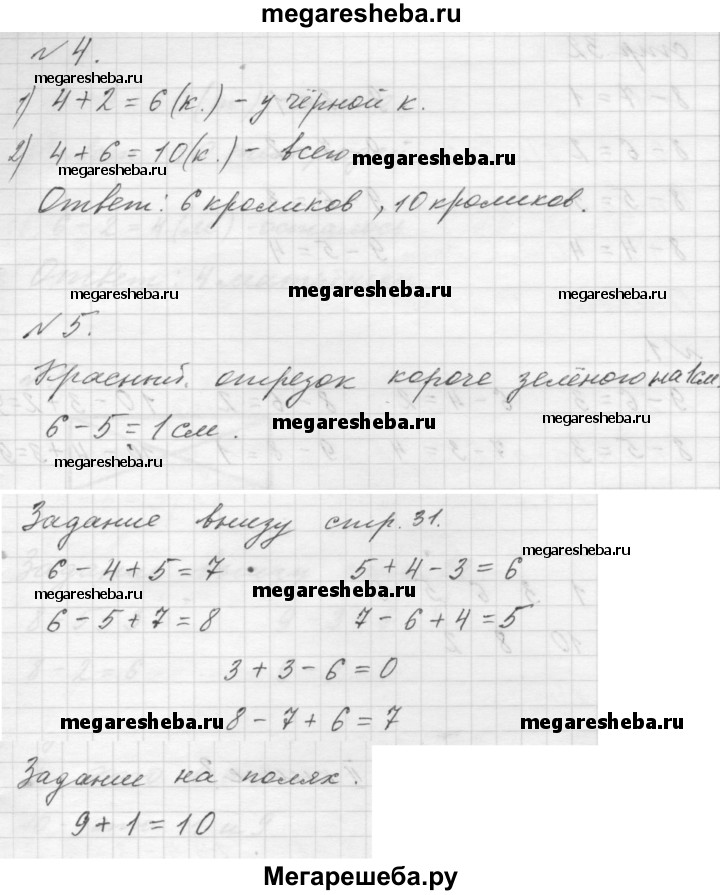 megaresheba.ru
№ 4.
megaresheba.ru
1) 4 + 2 = 6 (к.) - у чёрной к.
2) 4 + 6 = 10 (к.) - всего
megaresheba.ru
megaresheba.ru
Ответ: 6 кроликов, 10 кроликов.
megaresheba.ru
megaresheba.ru
megaresheba.ru
№ 5.
Красный отрезок короче зелёного на 1 см.
6 - 5 = 1 см.
megaresheba.ru
megaresheba.ru
megaresheba.ru
Задание внизу стр. 31.
megaresheba.ru
6 - 4 + 5 = 7 5 + 4 - 3 = 6
megaresheba.ru
megaresheba.ru
6 - 5 + 7 = 8 7 - 6 + 4 = 5
3 + 3 - 6 = 0
8 - 7 + 6 = 7
megaresheba.ru
megaresheba.ru
Задание на полях.
9 + 1 = 10
Мегарешеба.ру